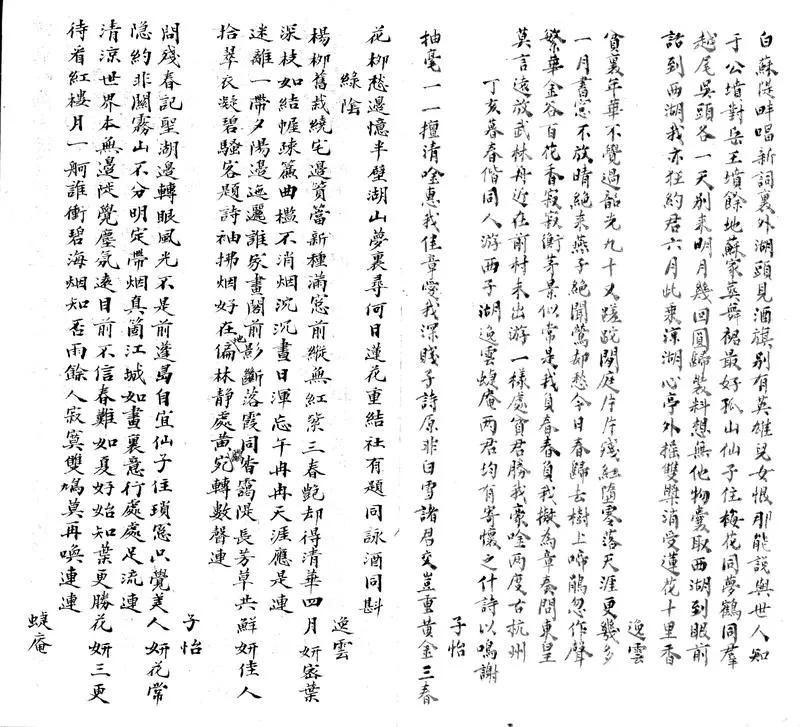 白蘇隄畔唱新詞裏外湖頭見酒旗別有英雄兒女恨那能說與世人知
于公墳對岳王墳餘地蘇家葬舞裙最好孤山仙子住梅花同夢鶴同羣
越尾吳頭各一天別來明月幾回圓歸裝料想無他物囊取西湖到眼前
話到西湖我亦狂約君六月此乘涼湖心亭外搖雙槳消受蓮花十里香
逸雲
貧裏年華不覺過韶光九十又蹉跎閑庭片片殘紅墮零落天涯更幾多
一月書窗不放晴絕來燕子絕聞鶯却愁今日春歸去樹上啼鵑忽作聲
繁華金谷百花香寂寂衡茅景似常是我負春春負我擬為章奏問東皇
莫言遠放武林舟近在前村未出游一樣處貧君勝我豪唫兩度古杭州
丁亥暮春偕同人游西子湖逸雲蜨庵兩君均有寄懷之什詩以鳴謝
子怡
抽毫一一擅清唫惠我佳章愛我深賤子詩原非白雪諸君交豈重黃金三春
花柳愁邊憶半壁湖山夢裏尋何日蓮花重結社有題同詠酒同斟
綠陰
逸雲
楊柳舊栽繞宅邊篔簹新種滿窗前縱無紅紫三春艷却得清華四月妍密葉
深枝如結幄疎簾曲檻不消烟沉沉晝日渾忘午冉冉天涯應是連
迷離一帶夕陽邊迤邐誰家畫閣前影斷落霞同香靄隄長芳草共鮮妍佳人
拾翠衣凝碧騷客題詩袖拂烟好在偏林靜處黃宛轉數聲連
子怡
問殘春記聖湖邊轉眼風光不是前蓬島自宜仙子住瑣窗只覺美人妍花常
隱約非關霧山不分明定帶烟真箇江城如畫裏意行處處足流連
清涼世界本無邊陡覺塵氛遠目前不信春難如夏好始知葉更勝花妍三更
待看紅樓月一舸誰衝碧海烟知否雨餘人寂寞雙鳩莫再喚連連
蜨庵